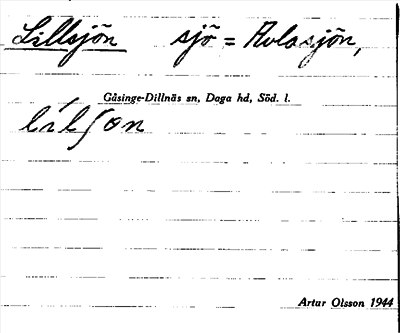 Lillsjön sjö = Avlasjön,
Gåsinge-Dillnäs sn, Daga hd, Söd. l.
lílʃon
Artur Olsson 1944